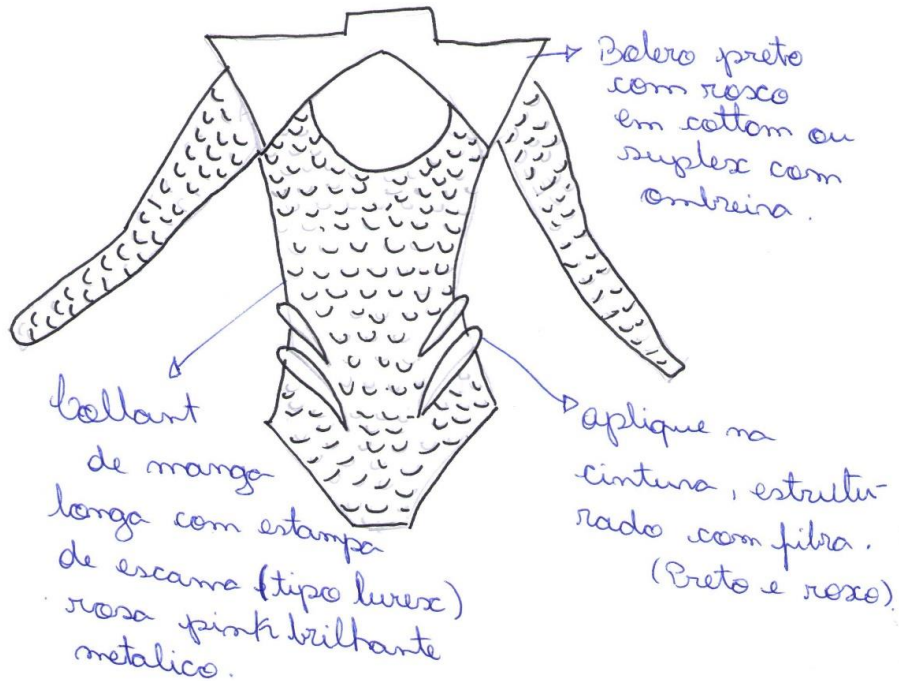 Bolero preto
com roxo
em cottom ou
suplex com
ombreira.
Collant
de manga
longa com estampa
de escama (tipo lurex)
rosa pink brilhante
metalico.
aplique na
cintura, estrutu-
rado com fibra.
(Preto e roxo)